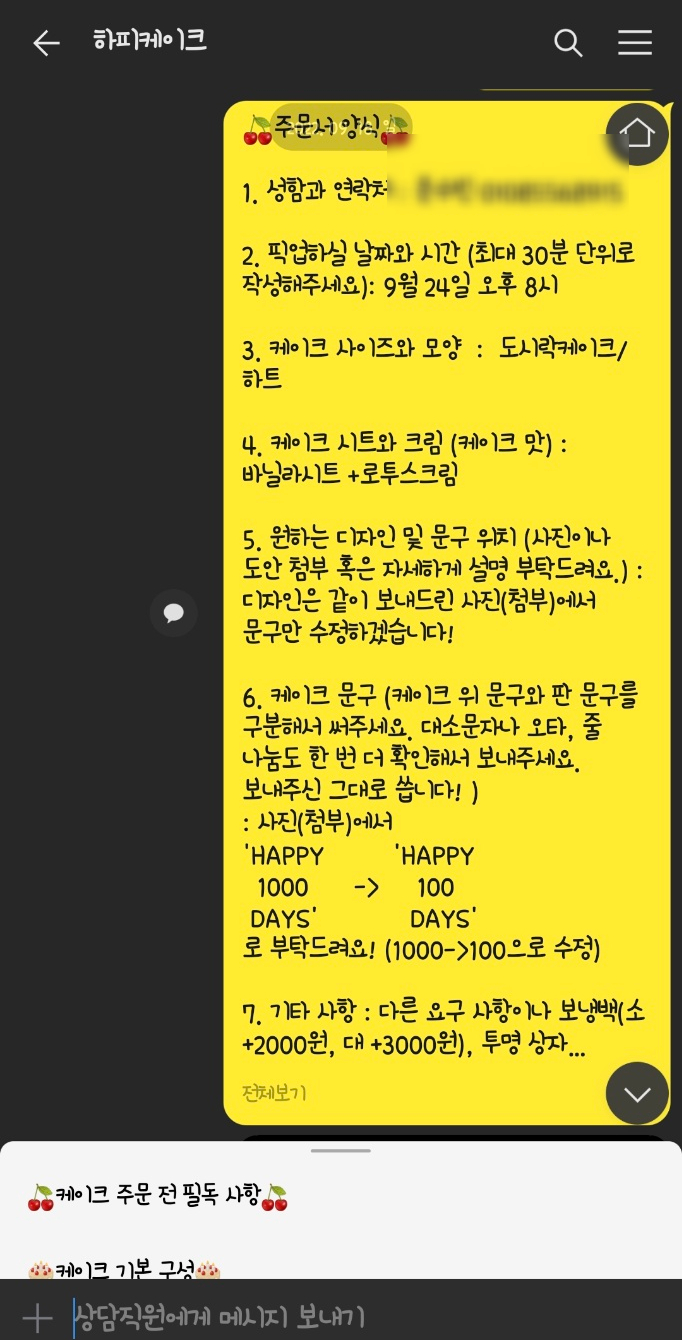 하피케이크
주문서 양식
1. 성함과 연락처
2. 픽업하실 날짜와 시간 (최대 30분 단위로
작성해주세요): 9월 24일 오후 8시
3. 케이크 사이즈와 모양 : 도시락케이크/
하트
4. 케이크 시트와 크림 (케이크 맛) :
바닐라시트 +로투스크림
5. 원하는 디자인 및 문구 위치 (사진이나
도안 첨부 혹은 자세하게 설명 부탁드려요.) :
디자인은 같이 보내드린 사진(첨부)에서
문구만 수정하겠습니다!
6. 케이크 문구 (케이크 위 문구와 판 문구를
구분해서 써주세요. 대소문자나 오타, 줄
나눔도 한 번 더 확인해서 보내주세요.
보내주신 그대로 씁니다! )
: 사진(첨부)에서
'HAPPY 'HAPPY
1000 -> 100
DAYS' DAYS'
로 부탁드려요! (1000->100으로 수정)
7. 기타 사항 : 다른 요구 사항이나 보냉백(소
+2000원, 대 +3000원), 투명 상자...
전체보기
케이크 주문 전 필독 사항
케이크 기본 구성
상담직원에게 메시지 보내기